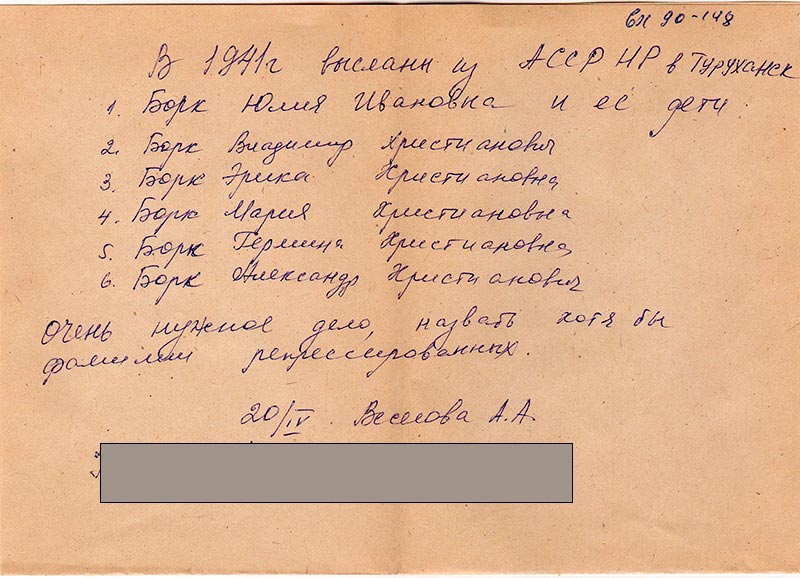 вх 90-148
В 1941г высланы из АССР НР в Туруханск
1. Борк Юлия Ивановна и ее дети
2. Борк Владимир Христианович
3. Борк Эрика Христиановна
4. Борк Мария Христиановна
5. Борк Гермина Христиановна
6. Борк Александр Христианович
Очень нужное дело, назвать хотя бы
фамилии репрессированных.
20/IV Веселова А.А.